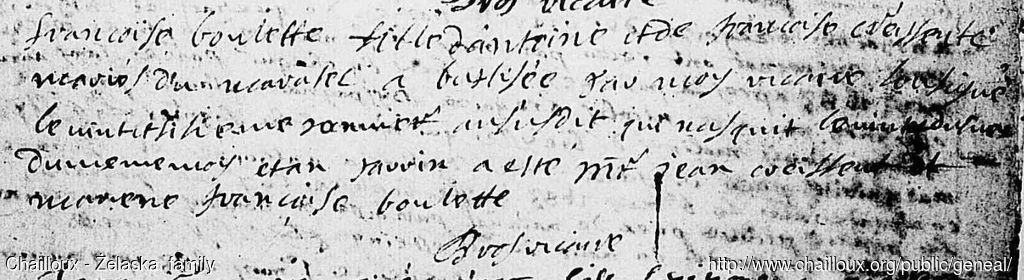 Bros vicaire
francoise boulette fille dantoine et de francoise croissente
mariés du marasel a baptisée par moy vicaire soussigné
le vintitrisieme janvier aususdit qui nasquit le
du meme mois et an parrin a esté Mr jean croissent et
marene françoise boulette
Bros vicaire
Chailloux - Zelaska family
http://www.chailloux.org/public/geneal/